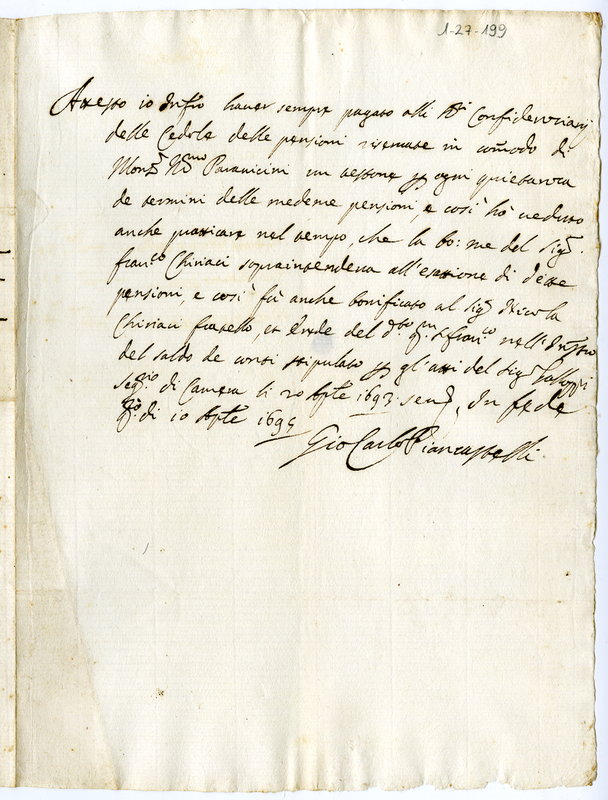 1-27-199
Attesto io Infro haver sempre pagato alli SSri Confidenziarij
delle Cedole delle pensioni riservate in com̃odo di
Monsr Illmo Paravicini un testone per ogni quietanza
de termini delle medeme pensioni, e così hò veduto
anche praticare nel tempo, che la bo: me del Sigr
franco Chiriaci sopraintendeva all'esattione di dette
pensioni, e così fù anche bonificato al Sigr Nicola
Chiriaci fratello, et Erede del dto qm Sr franco nell' Instro
del saldo de conti stipulato per gl'atti del Sigr
Segrio di Camera li 20 Aple 1693. In fede
qto di 10 Aple 1695
Gio Carlo Piancastelli